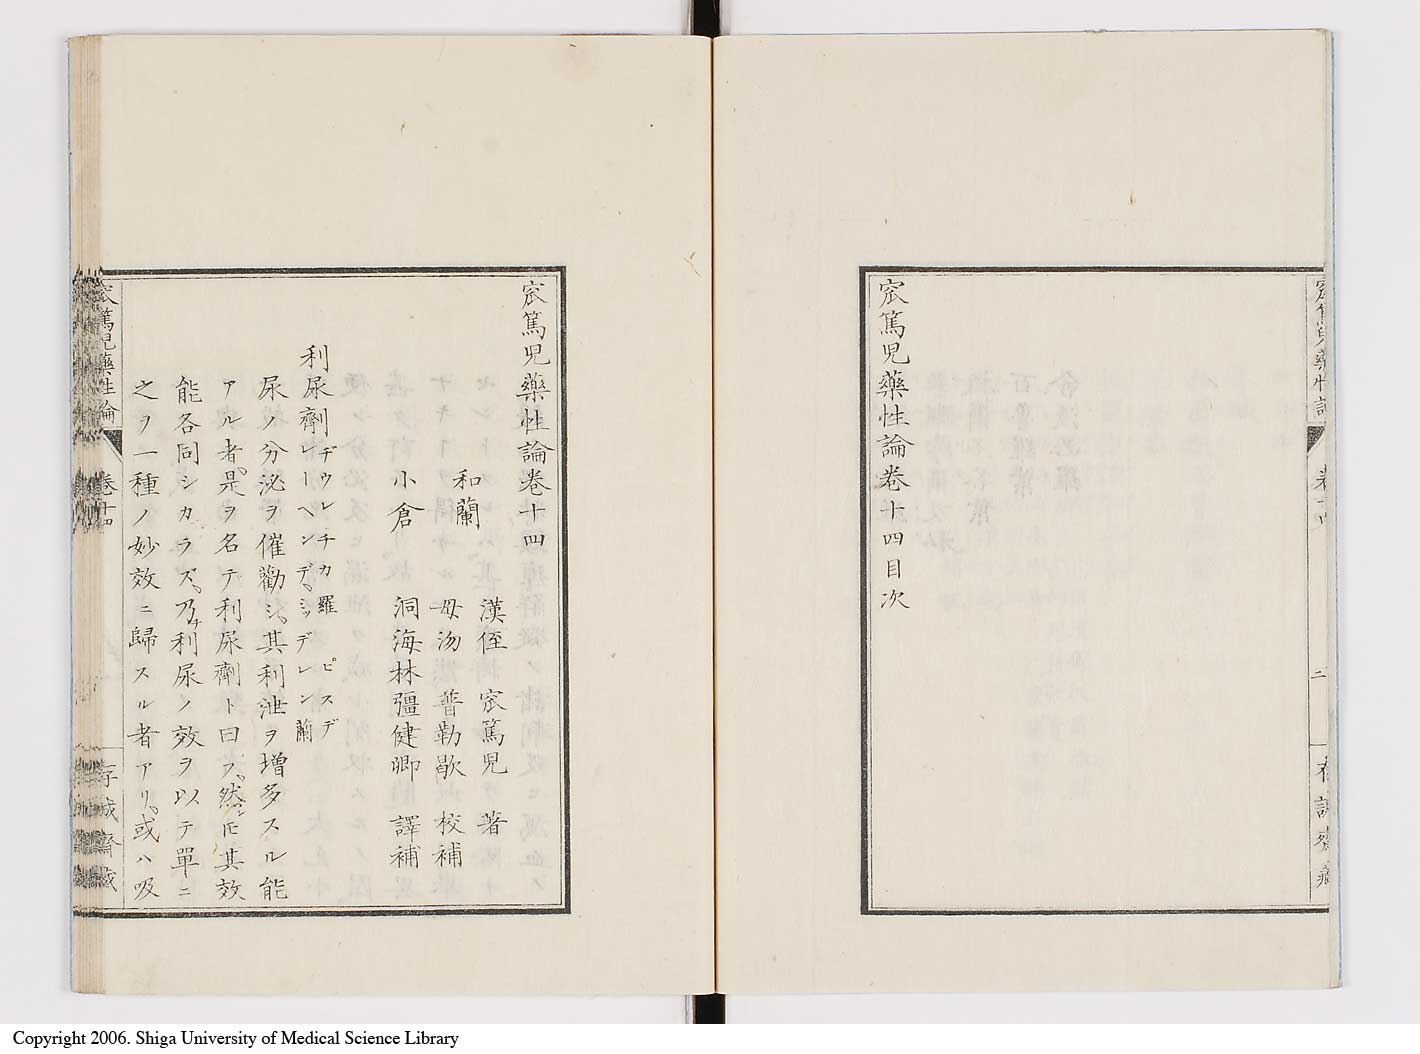 窊篤児藥性論卷十四目次
窊篤児藥性論卷十四
和蘭　漢侄　窊篤児　著
母汤　普勒歇　校補
小倉　洞海林彊健卿　譯補
利尿劑
ヂウレチカ羅　ピスデ
レーヘンデ、ミッデレン蘭
尿ノ分泌ヲ催勸シ、其利泄ヲ增多スル能
アル者、是ヲ名テ利尿劑ト曰フ、然レ𪜈其效
能各同シカラズ、乃チ利尿ノ效ヲ以テ單ニ
之ヲ一種ノ妙效ニ歸スル者アリ、或ハ吸
窊篤児藥性論
卷十四
存誠齋藏
窊篤児藥性論
卷十四
二
存誠齋藏
Copyright 2006. Shiga University of Medical Science Library